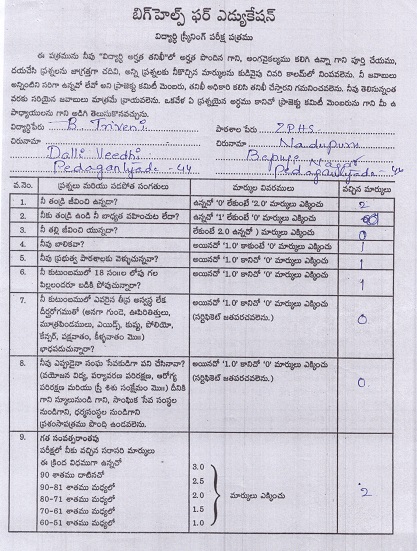 బిగ్‌హెల్ప్ ఫర్ ఎడ్యుకేషన్
విద్యార్థి స్క్రీనింగ్ పరీక్ష పత్రము
ఈ పత్రమును నీవు "విద్యార్థి అర్హత తనిఖీ"లో అర్హత పొందిన గాని, అంగవైకల్యము కలిగి ఉన్నా గాని పూర్తి చేయుము,
దయచేసి ప్రశ్నలను జాగ్రత్తగా చదివి, అన్ని ప్రశ్నలకు నీకొచ్చిన మార్కులను కుడివైపు చివరి కాలమ్‌లో నింపవలెను. నీ జవాబులు
అన్నింటిని సరిగా ఉన్నవో లేవో అని ప్రాజెక్టు కమిటీ మెంబరు, తనిఖీ అధికారి కలిసి తనిఖీ చేస్తారని గమనించవలెను. నీవు తెలిసినంత
వరకు సరియైన జవాబులు మాత్రమే వ్రాయవలెను. ఒకవేళ ఏ ప్రశ్నయైన అర్థము కానిచో ప్రాజెక్టు కమిటీ మెంబరును గాని మీ ఉ
పాధ్యాయులను గాని అడిగి తెలుసుకొనవచ్చును.
విద్యార్థిపేరు B. Triveni పాఠశాల పేరు ZPHS
చిరునామా Dalli Veedhi చిరునామా Nadupuru
Pedagantyada - 44 Bapuji Nagar
Pedagantyada - 44
వ.నెం. ప్రశ్నలు మరియు పదపోత సంగతులు మార్కుల వివరములు వచ్చిన మార్కులు
1. నీ తండ్రి జీవించి ఉన్నడా? ఉన్నచో '0' లేకుంటే '2.0' మార్కులు ఎక్కించు 2
2. నీకు తండ్రి ఉండి నీ బాధ్యత వహించుట లేదా? ఉన్నచో '1' లేకుంటే '0' మార్కులు ఎక్కించు
3. నీ తల్లి జీవించి యున్నదా? లేకుంటే 2.0 ఉన్నచో ) మార్కులు ఎక్కించు 0
4. నీవు బాలికవా? అయినచో '1.0' కాకుంటే '0' మార్కులు ఎక్కించు 1
5. నీవు ప్రభుత్వ పాఠశాలకు వెళ్ళుచున్నావా? అయినచో '1.0' కానిచో '0' మార్కులు ఎక్కించు 1
6. నీ కుటుంబములో 18 సం॥ల లోపు గల అయినచో '1.0' కానిచో '0' మార్కులు ఎక్కించు 1
పిల్లలందరూ బడికి పోవుచున్నారా?
7. నీ కుటుంబములో ఎవరైన తీవ్ర అస్వస్థ లేక అయినచో '1.0' కానిచో '0' మార్కులు ఎక్కించు 0
దీర్ఘరోగముతో (అనగా గుండె, ఊపిరితిత్తులు, (సర్టిఫికెట్ జతపరచవలెను.)
మూత్రపిండములు, ఎయిడ్స్, కుష్ఠు, పోలియో,
కేన్సర్, పక్షవాతం, కీళ్ళవాతం మొ॥)
భాధపడుచున్నారా?
8. నీవు ఎప్పుడైనా సంఘ సేవకుడిగా పని చేసినావా? అయినచో '1.0' కానిచో '0' మార్కులు ఎక్కించు 0
(వయోజన విద్య, పర్యావరణ పరిరక్షణ, ఆరోగ్య (సర్టిఫికెట్ జతపరచవలెను.)
పరిరక్షణ మరియు స్త్రీ శిశు సంక్షేమం మొ॥) దీనికి
గాని స్కూలునుండి గాని, సాంఘిక సేవ సంస్థల
నుండిగాని, ధర్మసంస్థల నుండిగాని
ప్రశంసాపత్రము పొంది ఉండవలెను.
9. గత సంవత్సరాంతపు
పరీక్షలో నీకు వచ్చిన సరాసరి మార్కులు
ఈ క్రింది విధముగా ఉన్నచో
90 శాతము దాటినచో 3.0
90-81 శాతము మధ్యలో 2.5
80-71 శాతము మధ్యలో 2.0 మార్కులు ఎక్కించు 2
70-61 శాతము మధ్యలో 1.5
60-51 శాతము మధ్యలో 1.0